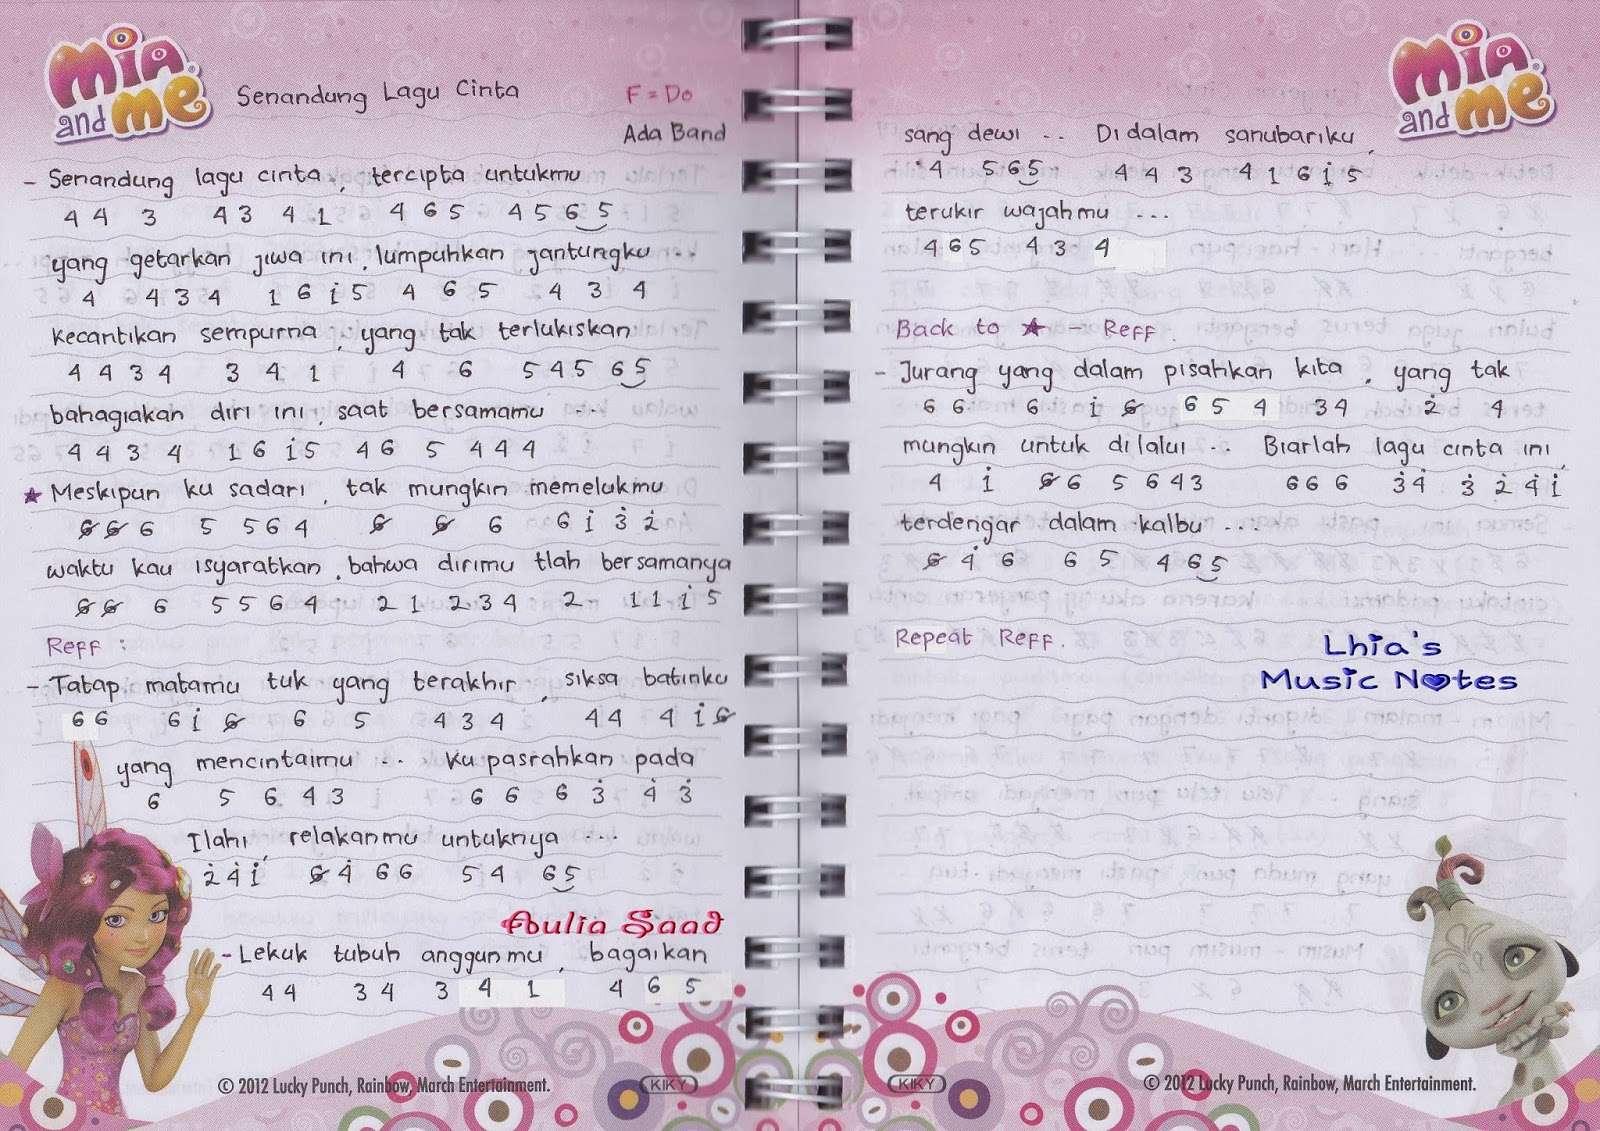 mia and me
Senandung Lagu Cinta
F = Do
Ada Band
- Senandung lagu cinta, tercipta untukmu
4 4 3 4 3 4 1 4 6 5 4 5 6 5
yang getarkan jiwa ini, lumpuhkan jantungku ...
4 4 3 4 1 6 i 5 4 6 5 4 3 4
kecantikan sempurna, yang tak terlukiskan
4 4 3 4 3 4 1 4 6 5 4 5 6 5
bahagiakan diri ini, saat bersamamu ...
4 4 3 4 1 6 i 5 4 6 5 4 4 4
★ Meskipun ku sadari, tak mungkin memelukmu
6̸ 6̸ 6 5 5 6 4 6̸ 6̸ 6 6 i 3̇ 2̇
waktu kau isyaratkan, bahwa dirimu tlah bersamanya
6̸ 6̸ 6 5 5 6 4 2 1 2 3 4 2 1 1 i 5
Reff :
- Tatap matamu tuk yang terakhir, siksa batinku
6 6 6 i 6̸ 6 5 4 3 4 4 4 4 i 6̸
yang mencintaimu ... Ku pasrahkan pada
6 5 6 4 3 6 6 6 3̇ 4̇ 3̇
Ilahi, relakanmu untuknya ...
2̇ 4̇ i 6̸ 4̇ 6 6 5 4 6 5
Aulia Saad
- Lekuk tubuh anggunmu, bagaikan
4 4 3 4 3 4 1 4 6 5
© 2012 Lucky Punch, Rainbow, March Entertainment.
KIKY
mia and me
sang dewi .. Didalam sanubariku,
4 5 6 5 4 4 3 4 1 6 i 5
terukir wajahmu ...
4 6 5 4 3 4
Back to ★ - Reff.
- Jurang yang dalam pisahkan kita, yang tak
6 6 6 i 6̸ 6 5 4 3 4 2̇ 4
mungkin untuk dilalui .. Biarlah lagu cinta ini,
4 i 6̸ 6 5 6 4 3 6 6 6 3̇ 4̇ 3̇ 2̇ 4̇ i
terdengar dalam kalbu ...
6̸ 4̇ 6 6 5 4 6 5
Repeat Reff.
Lhia's
Music Notes
KIKY
© 2012 Lucky Punch, Rainbow, March Entertainment.